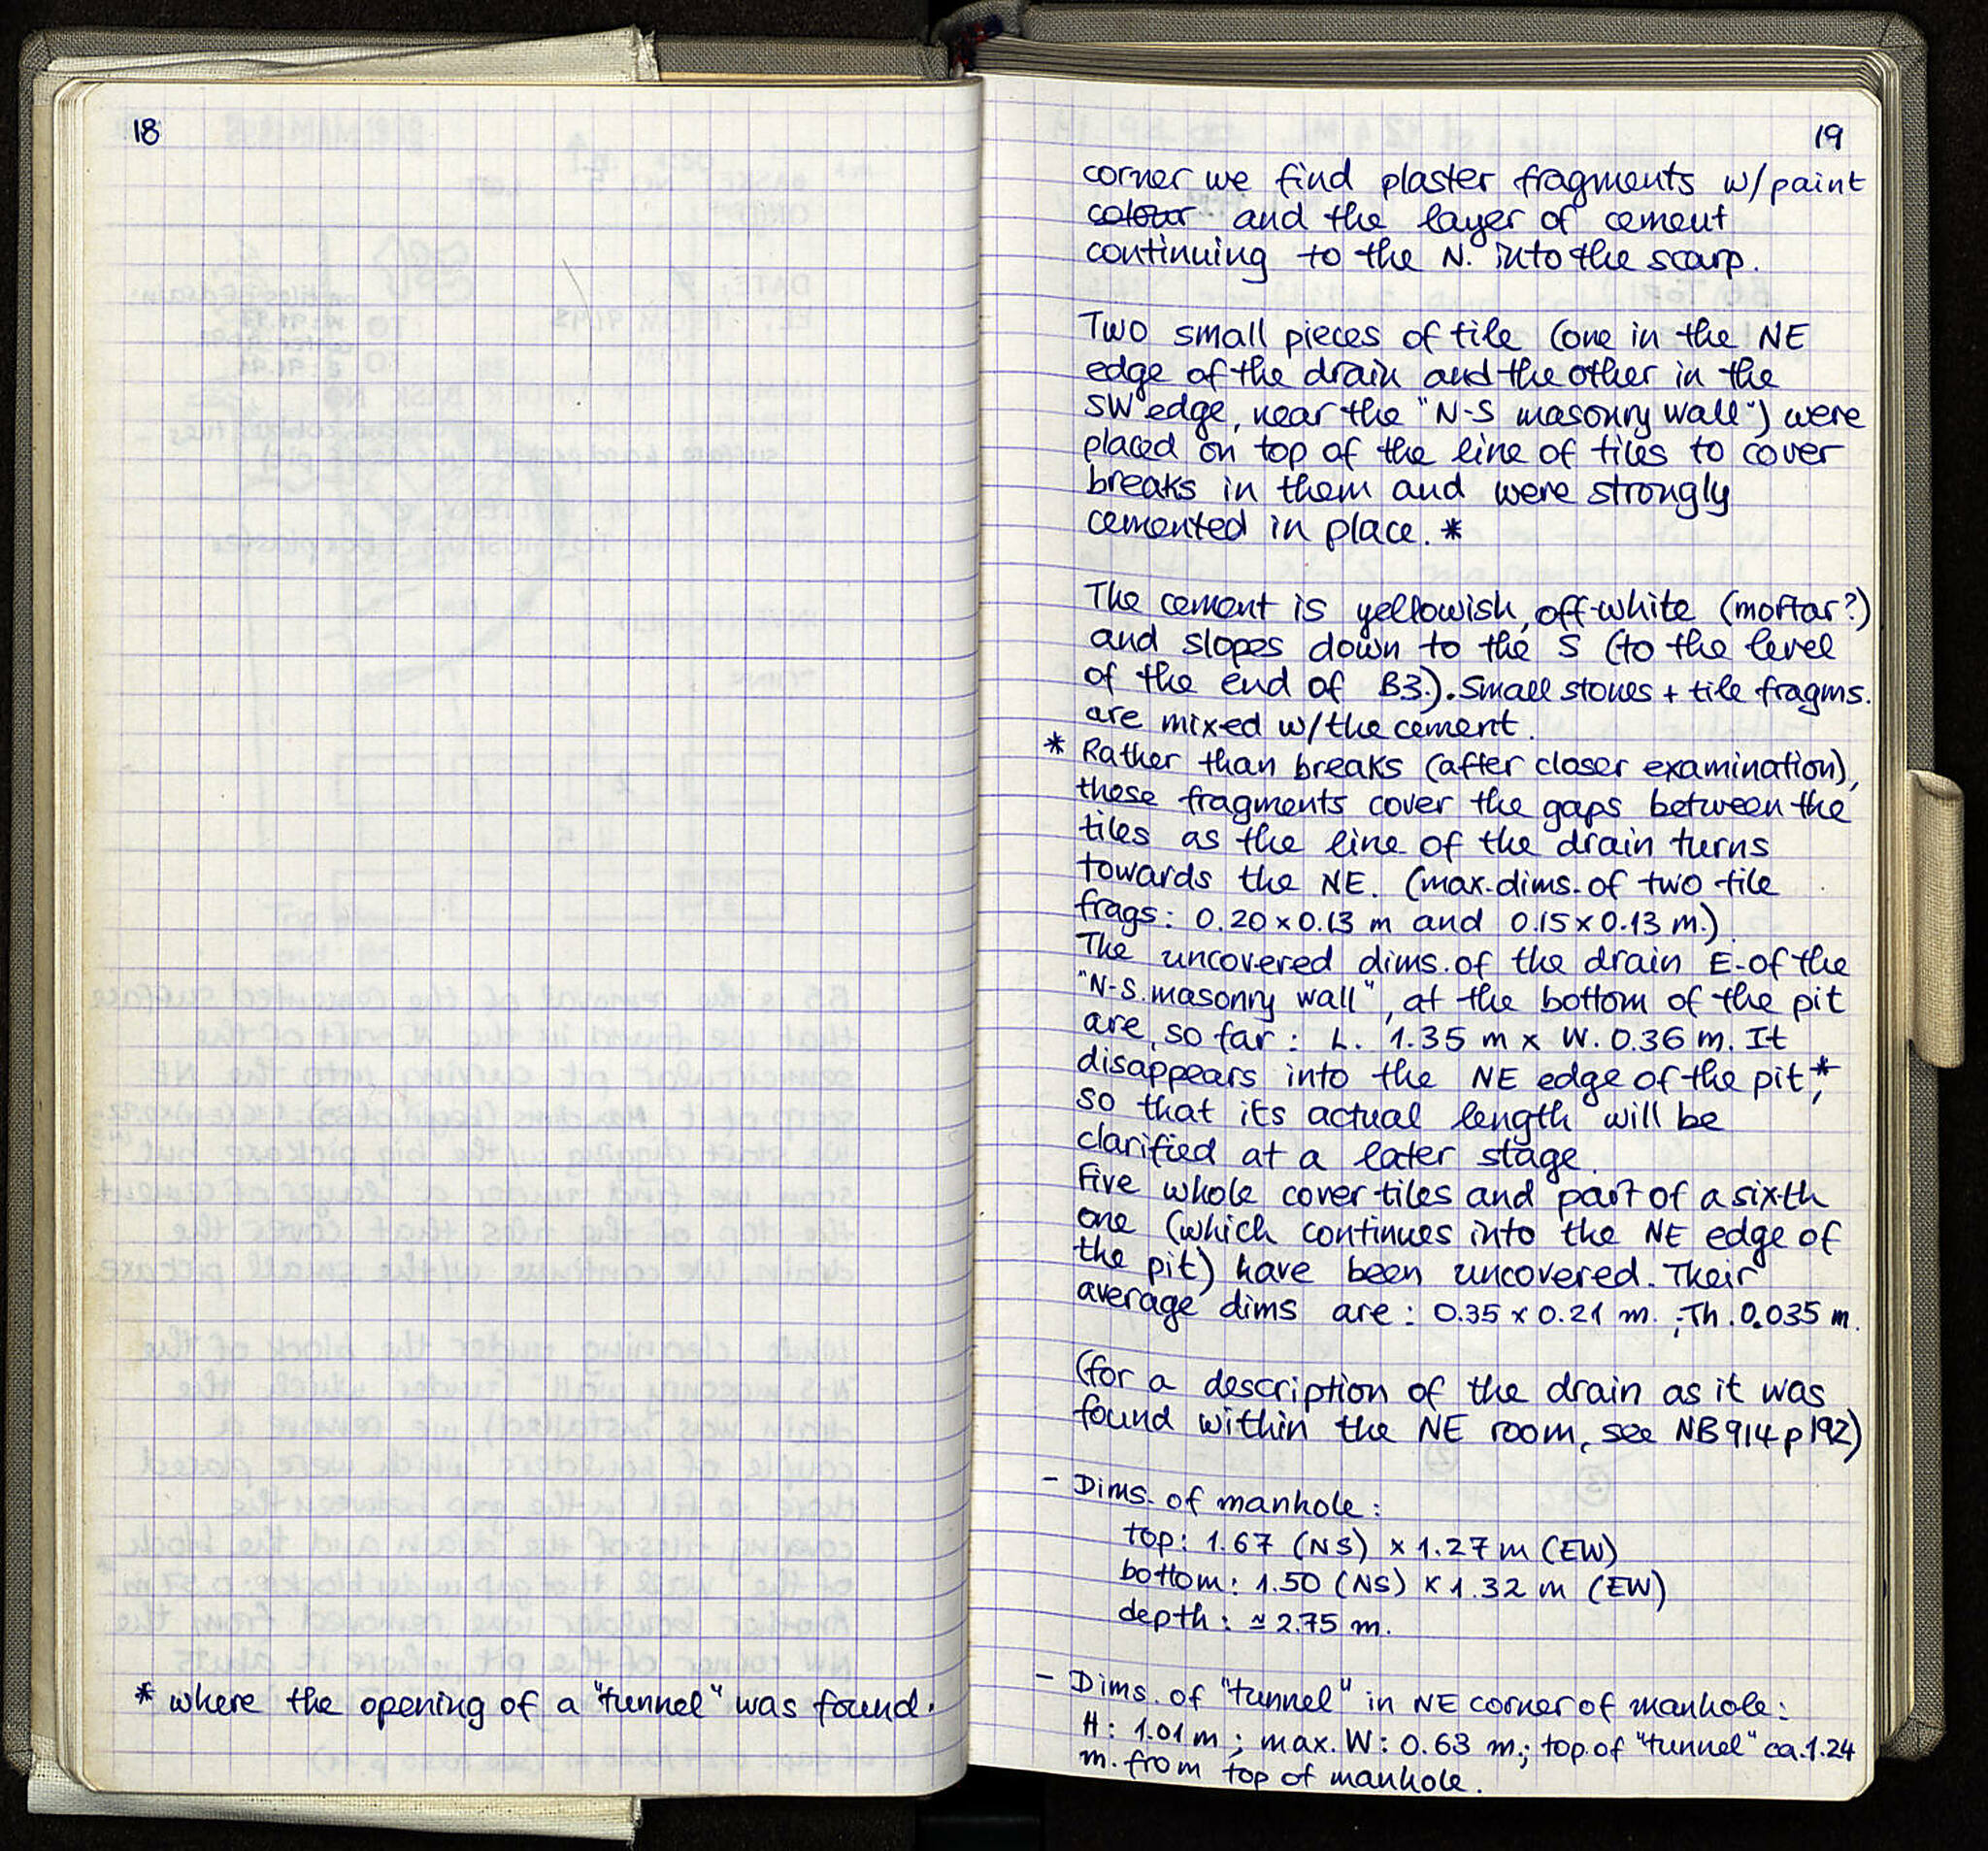 18
* where the opening of a "tunnel" was found.
19
corner we find plaster fragments w/paint
colour and the layer of cement
continuing to the N. into the scarp.
Two small pieces of tile (one in the NE
edge of the drain and the other in the
SW edge, near the "N-S masonry wall") were
placed on top of the line of tiles to cover
breaks in them and were strongly
cemented in place. *
The cement is yellowish, off-white (mortar?)
and slopes down to the S (to the level
of the end of B3.). Small stones + tile fragms.
are mixed w/the cement.
* Rather than breaks (after closer examination),
these fragments cover the gaps between the
tiles as the line of the drain turns
towards the NE. (max. dims. of two tile
frags: 0.20 x 0.13 m and 0.15 x 0.13 m.)
The uncovered dims. of the drain E. of the
"N-S. masonry wall", at the bottom of the pit
are, so far: L. 1.35 m x W. 0.36 m. It
disappears into the NE edge of the pit,*
so that its actual length will be
clarified at a later stage.
Five whole cover tiles and part of a sixth
one (which continues into the NE edge of
the pit) have been uncovered. Their
average dims are: 0.35 x 0.21 m. ; Th. 0.035 m.
(for a description of the drain as it was
found within the NE room, see NB 914 p 192)
- Dims. of manhole:
top: 1.67 (NS) x 1.27 m (EW)
bottom: 1.50 (NS) x 1.32 m (EW)
depth: ≃ 2.75 m.
- Dims. of "tunnel" in NE corner of manhole:
H: 1.01 m ; max. W: 0.63 m.; top of "tunnel" ca. 1.24
m. from top of manhole.